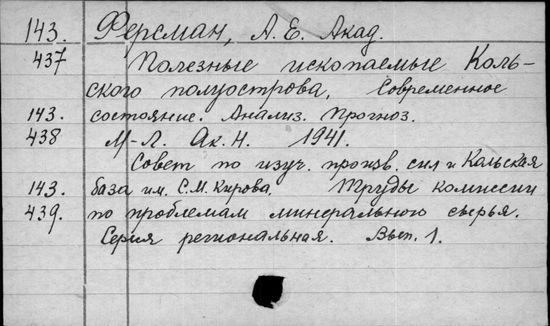 143. Ферсман, А. Е. Акад.
437 Полезные ископаемые Коль-
ского полуострова. Современное
143. состояние. Анализ. Прогноз.
438 М-Л. Ак. Н. 1941.
Совет по изуч. произв. сил и Кольская
143. база им. С. М. Кирова. Труды комиссии
439. по проблемам минерального сырья.
Серия региональная. Вып. 1.